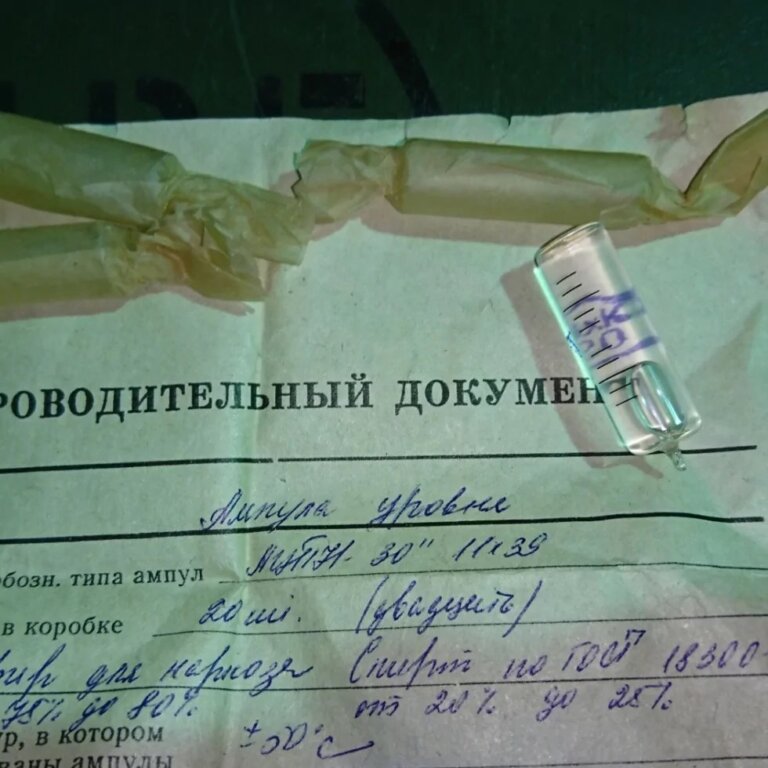 РОВОДИТЕЛЬНЫЙ ДОКУМЕН
Ампула уровня
обозн. типа ампул 30" 11х39
в коробке 20 шт. (двадцать)
для наркоза Спирт по ГОСТ 18300-
75% до 80% от 20% до 25%
ур, в котором ±50°С
ваны ампулы